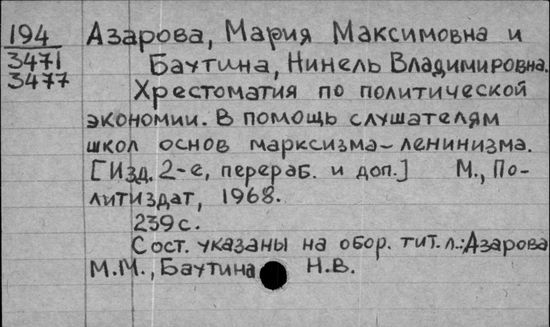 194 Азарова, Мария Максимовна и
3471 Баутина, Нинель Владимировна.
3477 Хрестоматия по политической
экономии. В помощь слушателям
школ основ марксизма-ленинизма.
[Изд. 2-е, перераб. и доп.] М., По-
литиздат, 1968.
239 с.
Сост. указаны на обор. тит. л.: Азарова
М.М., Баутина Н.В.